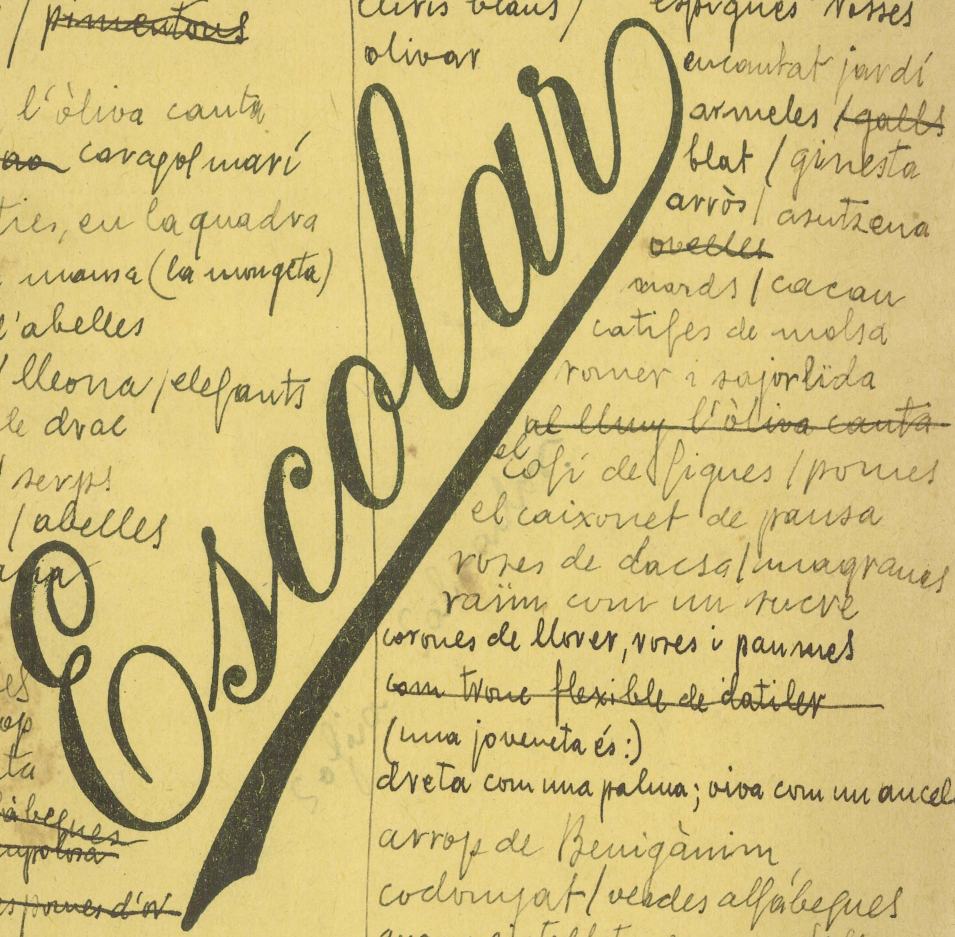 / pimentons
l'òliva canta
caragol marí
en la quadra
mansa (la mongeta)
l'abelles
/ lleona / elefants
le drac
/ serps
/ abelles
Escolar
olivar
espigues rosses
encantat jardí
armeles / galls
blat / ginesta
arròs / assutzena
ovelles
nards / cacau
catifes de molsa
romer i sajorlida
al lluny l'òliva canta
el cofí de figues / pomes
el caixonet de pansa
roses de dacsa / magranes
raïm com un sucre
corones de llorer, roses i paumes
com tronc flexible de datiler
(una joveneta és:)
dreta com una palma; viva com un aucel
arrop de Benigànim
codonyat / verdes alfàbegues
àbegues
es pomes d'or